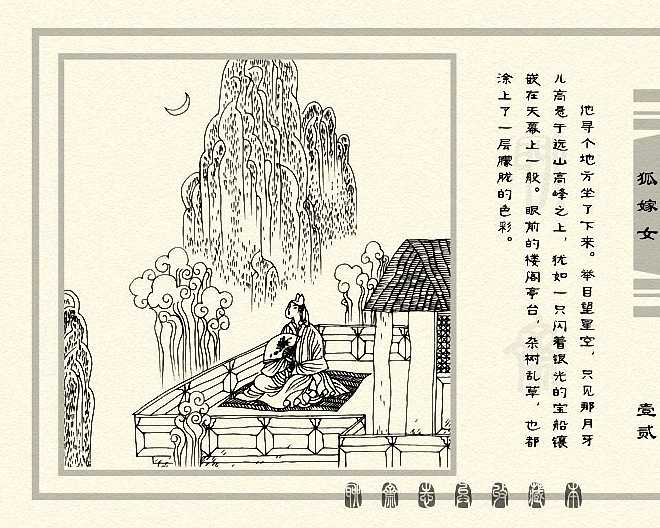 他寻个地方坐了下来。举目望星空，只见那月牙
儿高悬于远山高峰之上，犹如一只闪着银光的宝船镶
嵌在天幕上一般。眼前的楼阁亭台，杂树乱草，也都
涂上了一层朦胧的色彩。
狐嫁女
壹贰